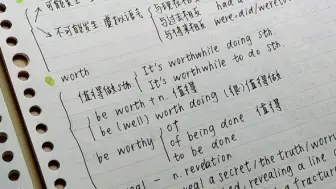 可能发生
不可能发生 虚拟语气
与现在
与过去相反 had d
与将来相反 were.did/were
worth
值得做sth
It's worthwhile doing sth.
It's worthwhile to do sth.
be worth + n. 值得
be (well) worth doing (很)值得做
be worthy
of
of being done 值得
to be done
n. revelation
reveal a secret/the truth/worr
revealing a line